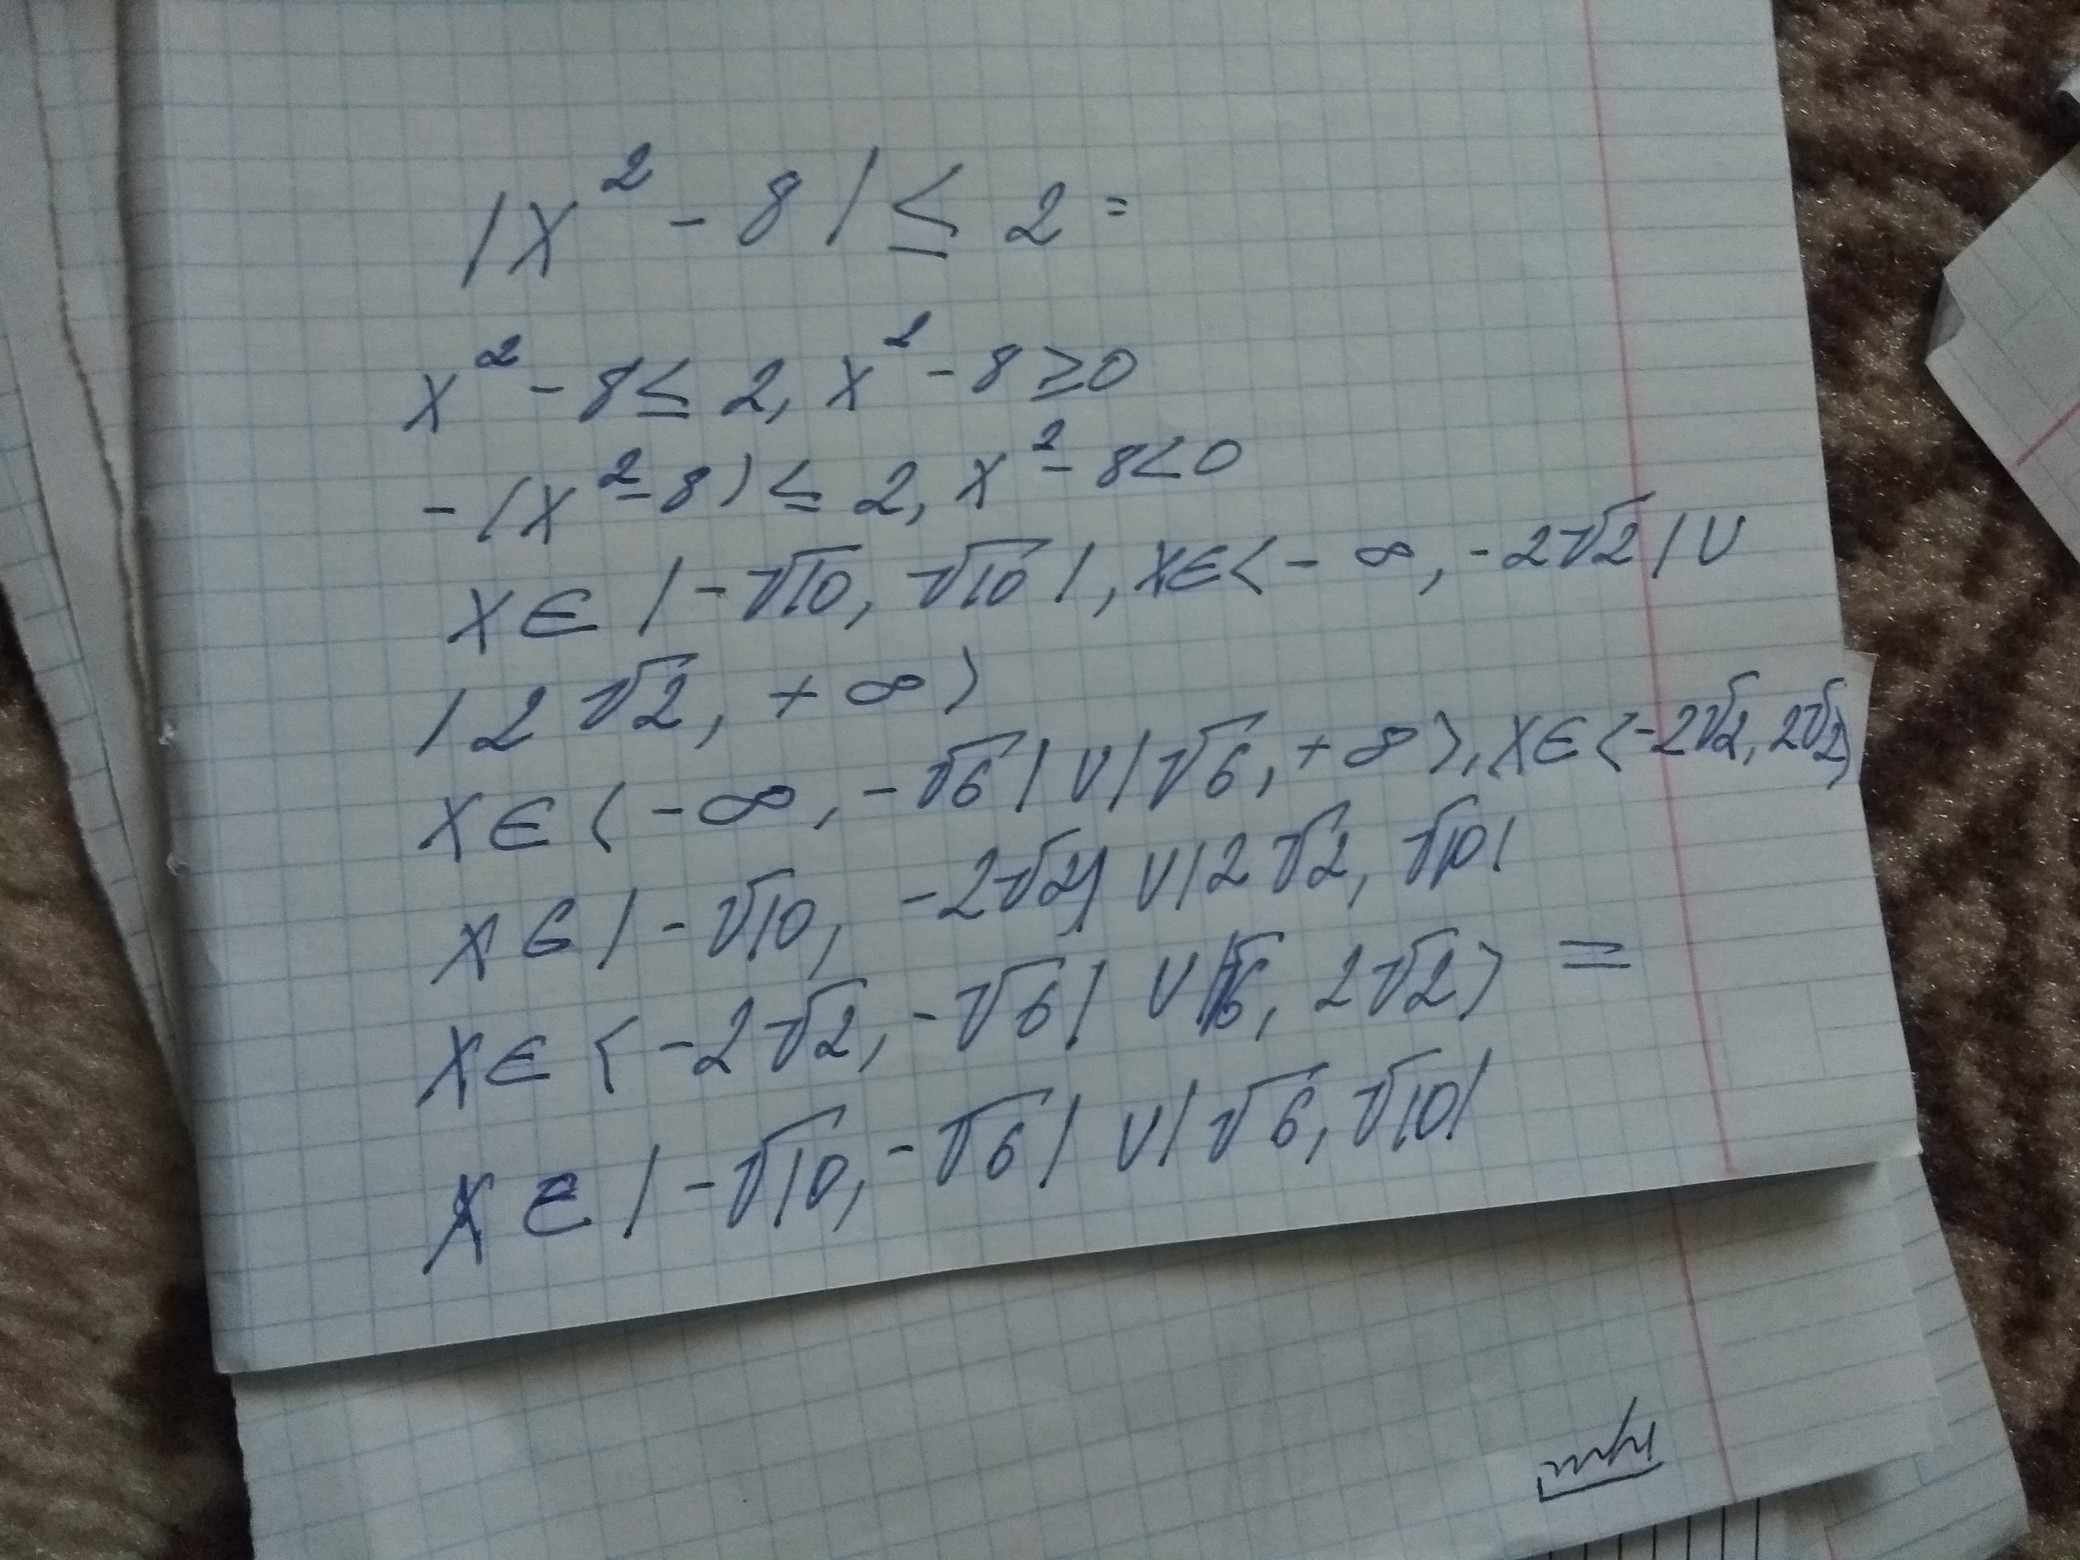 |x² - 8| ≤ 2 =
x² - 8 ≤ 2, x² - 8 ≥ 0
-(x² - 8) ≤ 2, x² - 8 < 0
x ∈ | -√10, √10 |, x ∈ < - ∞, -2√2 | ∪
| 2√2, + ∞ >
x ∈ < - ∞, -√6 | ∪ | √6, + ∞ >, x ∈ < -2√2, 2√2 >
x ∈ | -√10, -2√2 | ∪ | 2√2, √10 |
x ∈ < -2√2, -√6 | ∪ | √6, 2√2 > =
x ∈ | -√10, -√6 | ∪ | √6, √10 |